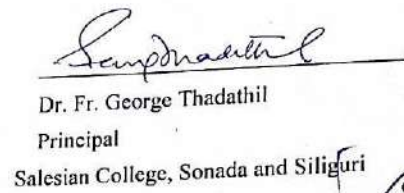 Dr. Fr. George Thadathil
Principal
Salesian College, Sonada and Siliguri